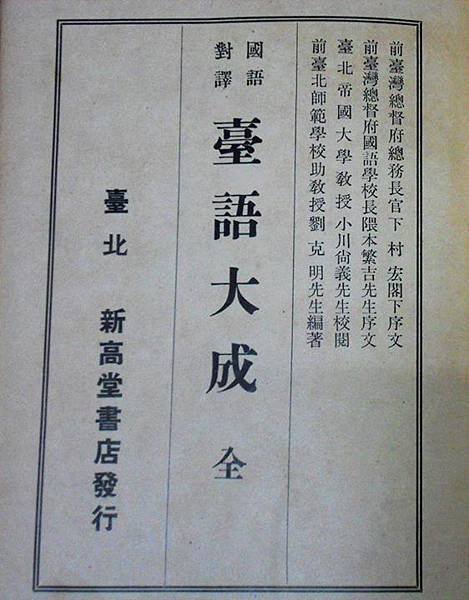 前臺灣總督府總務長官下村宏閣下序文
前臺灣總督府國語學校長隈本繁吉先生序文
臺北帝國大學教授小川尙義先生校閱
前臺北師範學校助教授劉克明先生編著
國語
對譯
臺語大成 全
臺北 新高堂書店發行